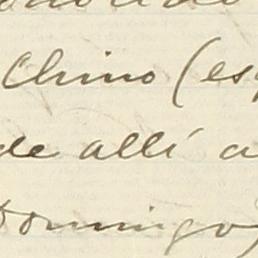 Chino (es
de allí a
Domingo)